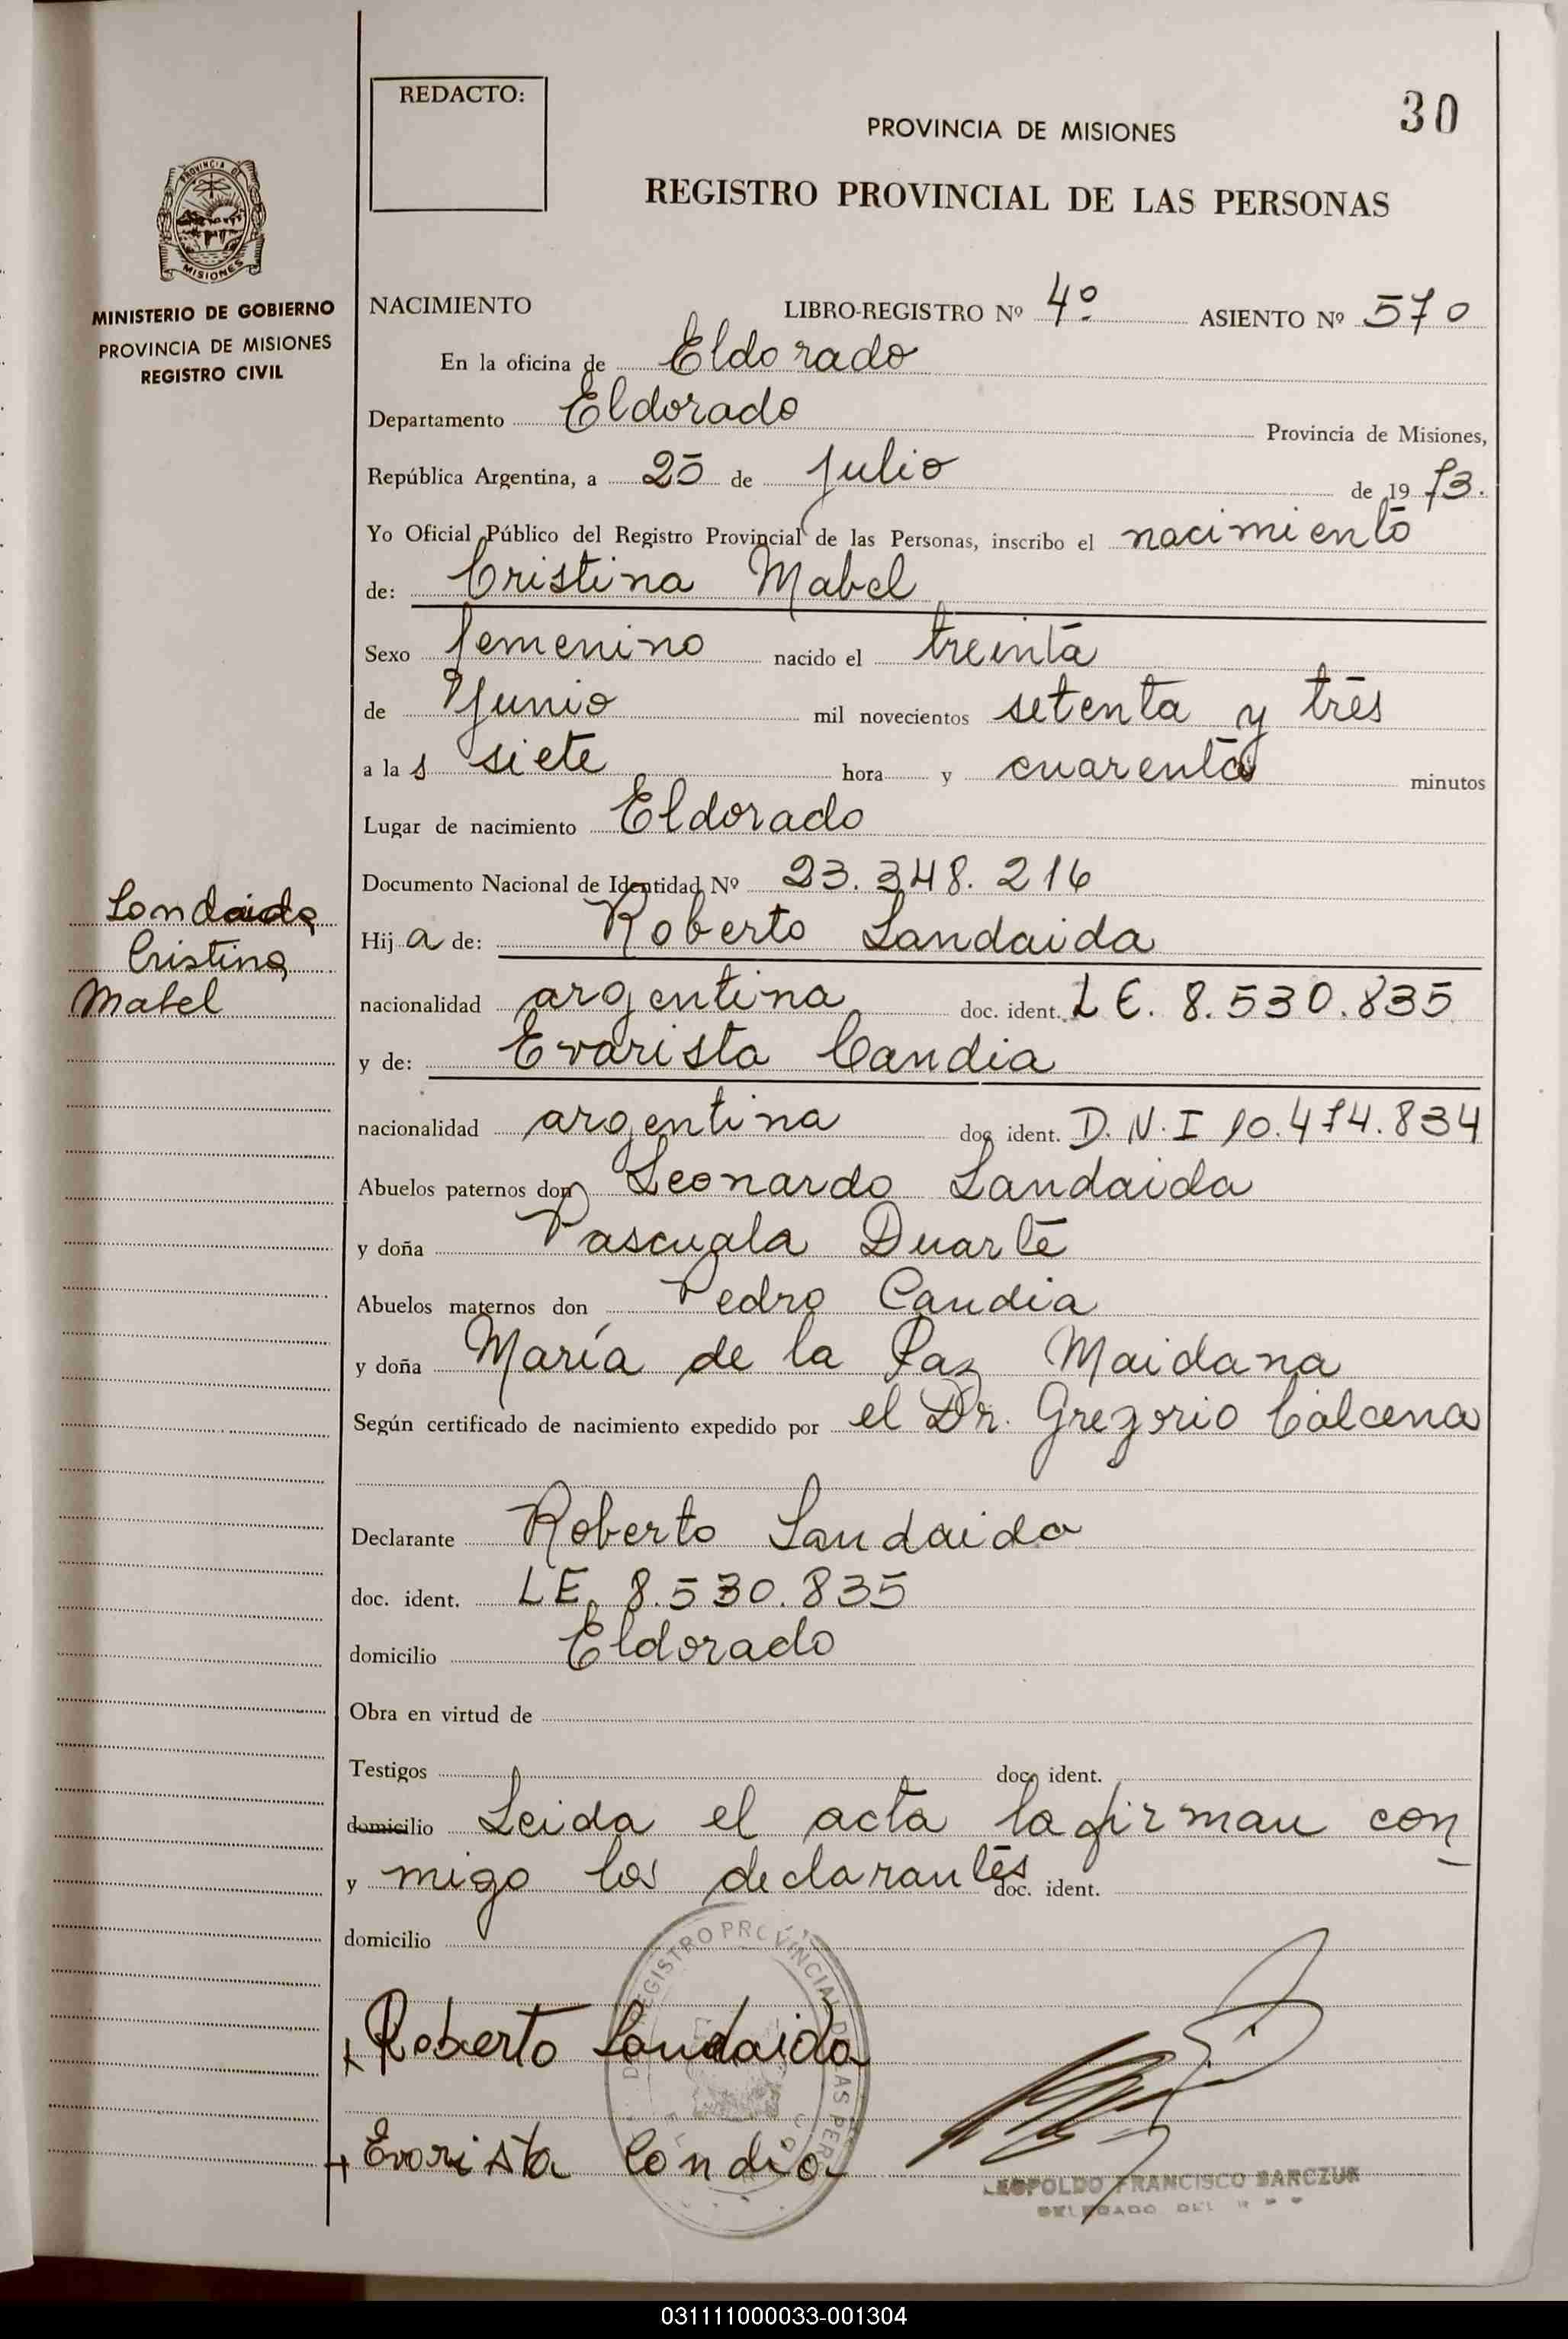 REDACTO:
30
PROVINCIA DE MISIONES
REGISTRO PROVINCIAL DE LAS PERSONAS
PROVINCIA DE
MISIONES
MINISTERIO DE GOBIERNO
PROVINCIA DE MISIONES
REGISTRO CIVIL
NACIMIENTO LIBRO-REGISTRO Nº 4º ASIENTO Nº 570
En la oficina de Eldorado
Departamento Eldorado Provincia de Misiones,
República Argentina, a 25 de Julio de 19 73.
Yo Oficial Público del Registro Provincial de las Personas, inscribo el nacimiento
de: Cristina Mabel
Sexo femenino nacido el treinta
de Junio mil novecientos setenta y tres
a la s siete hora y cuarenta minutos
Lugar de nacimiento Eldorado
Documento Nacional de Identidad Nº 23.348.216
Landaida
Cristina
Mabel
Hij a de: Roberto Landaida
nacionalidad argentina doc. ident. L E. 8.530.835
y de: Evarista Candia
nacionalidad argentina doc ident. D.N.I 10.474.834
Abuelos paternos don Leonardo Landaida
y doña Pascuala Duarte
Abuelos maternos don Pedro Candia
y doña María de la Paz Maidana
Según certificado de nacimiento expedido por el Dr. Gregorio Calcena
Declarante Roberto Landaida
doc. ident. LE. 8.530.835
domicilio Eldorado
Obra en virtud de
Testigos doc. ident.
domicilio Leida el acta la firman con
y migo los declarantes doc. ident.
domicilio
REGISTRO PROVINCIAL DE LAS PER
Roberto Landaida
Evarista Candia
LEOPOLDO FRANCISCO BARCZUK
DELEGADO DEL
031111000033-001304